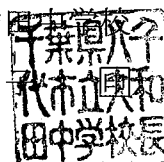 千葉県八千
代市立大和
田中学校長